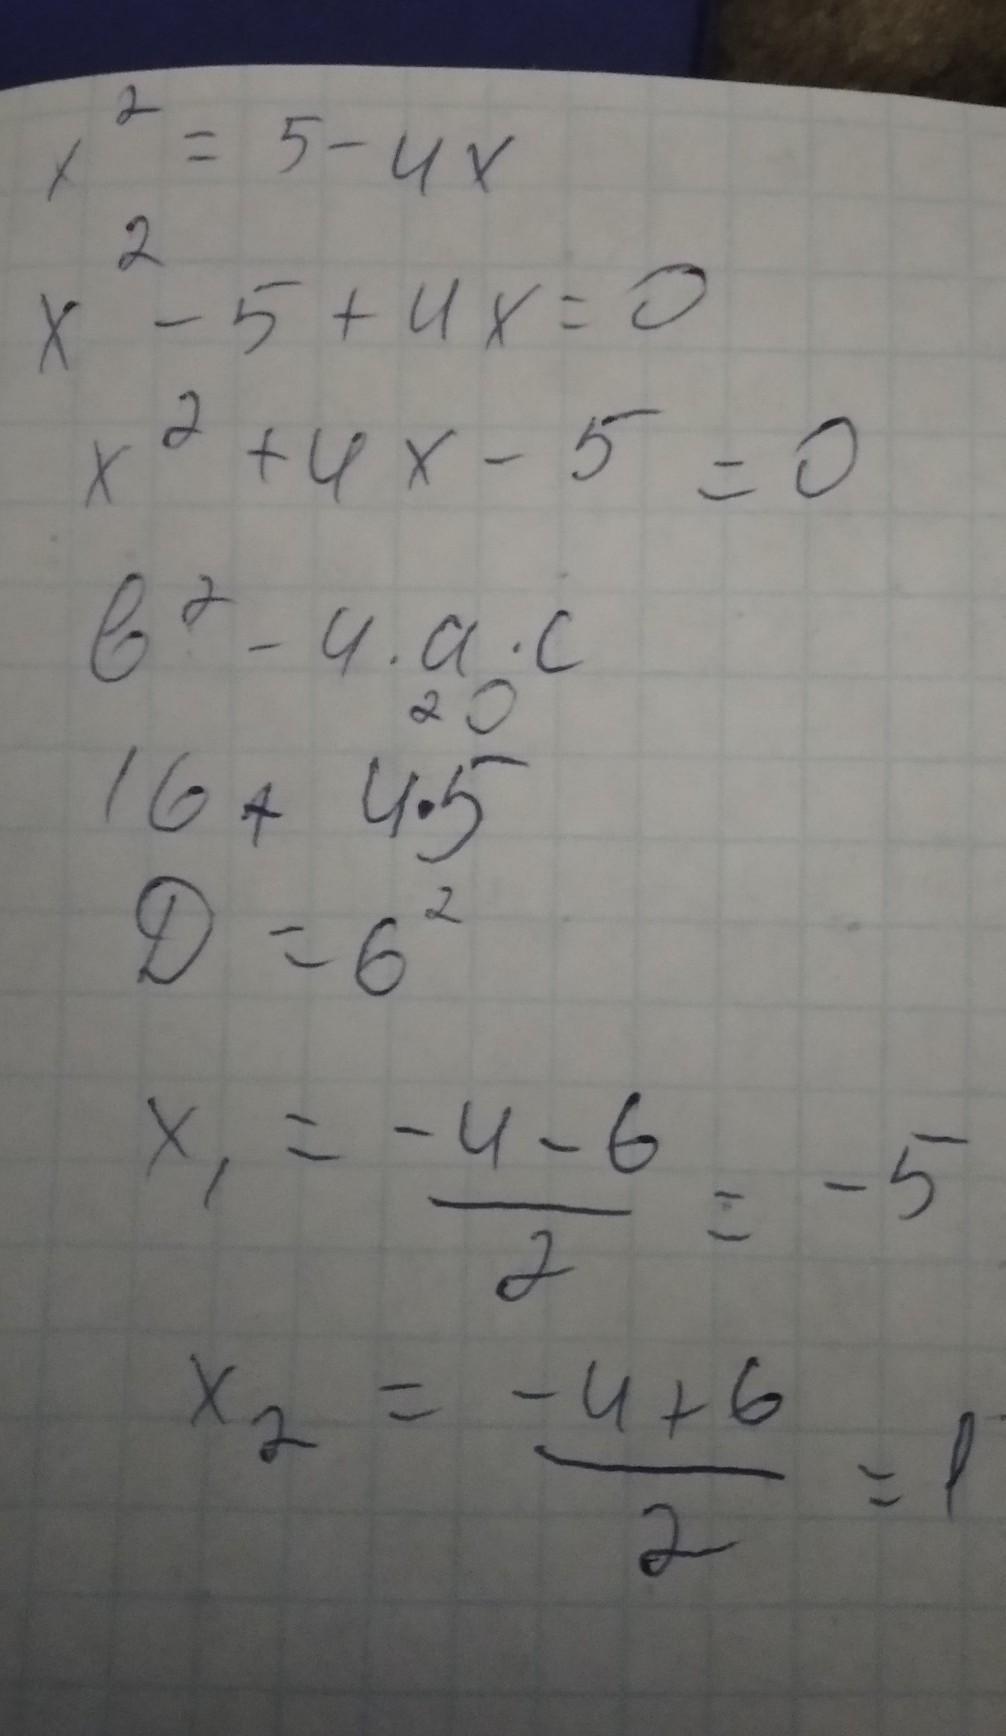 x² = 5 - 4x
x² - 5 + 4x = 0
x² + 4x - 5 = 0
b² - 4 · a · c
20
16 + 4·5
D = 6²
x₁ = (-4 - 6)/2 = -5
x₂ = (-4 + 6)/2 = 1